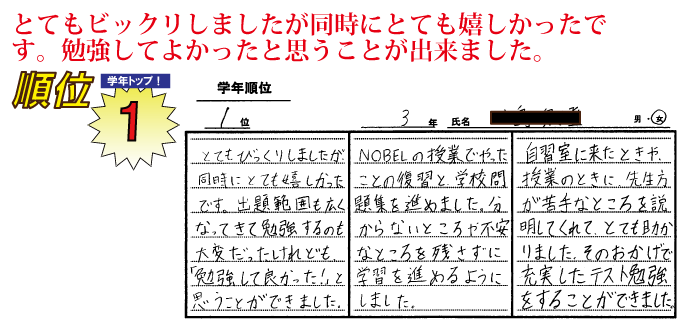 とてもビックリしましたが同時にとても嬉しかったで
す。勉強してよかったと思うことが出来ました。
順位
学年トップ！
1
学年順位
1位
3年 氏名
男・女
とてもびっくりしましたが
同時にとても嬉しかった
です。出題範囲も広く
なってきて勉強するのも
大変だったけれども
「勉強して良かった！」と
思うことができました。
NOBELの授業でやった
ことの復習と、学校問
題集を進めました。分
からないところや不安
なところを残さずに
学習を進めるように
しました。
自習室に来たときや、
授業のときに、先生方
が苦手なところを説
明してくれて、とても助か
りました。そのおかげで
充実したテスト勉強
をすることができました。